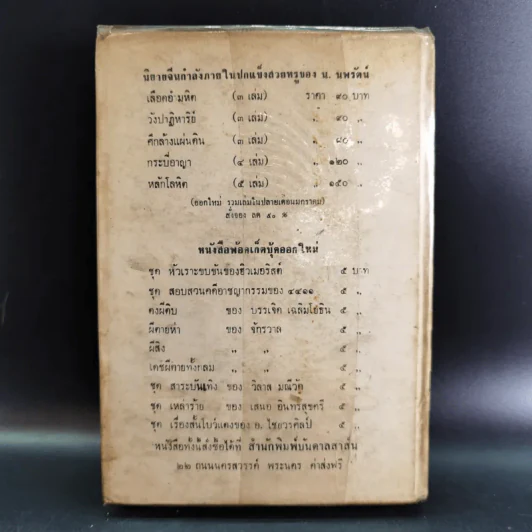 นิยายจีนกำลังภายในปกแข็งสวยหรูของ น. นพรัตน์
เลือดอำมหิต (๓ เล่ม) ราคา ๙๐ บาท
วังปาฏิหาริย์ (๓ เล่ม) " ๙๐ "
ศึกล้างแผ่นดิน (๓ เล่ม) " ๘๐ "
กระบี่อาญา (๔ เล่ม) " ๑๒๐ "
หลั่กโลหิต (๕ เล่ม) " ๑๕๐ "
(ออกใหม่ รวมเล่มในปลายเดือนมกราคม)
สั่งจอง ลด ๕๐ %
หนังสือพ้อคเก็ตบุ๊คออกใหม่
ชุด หัวเราะขบขันของฮิวเมอริสต์ ๕ บาท
ชุด สอบสวนคดีอาชญากรรมของ ๔๔๑๑ ๕ "
ดงผีดิบ ของ บรรเจิด เฉลิมโยธิน ๕ "
ผีตายห่า ของ จักรวาล ๕ "
ผีสิง " " ๕ "
เดชผีตายทั้งกลม " " ๕ "
ชุด สาระบันเทิง ของ วิลาส มณีวัต ๕ "
ชุด เหล่าร้าย ของ เสนอ อินทรสุขศรี ๕ "
ชุด เรื่องสั้นโบว์แดงของ อ. ไชยวรศิลป์ ๕ "
หนังสือทั้งนี้สั่งซื้อได้ที่ สำนักพิมพ์บันดาลสาส์น
๒๒ ถนนนครสวรรค์ พระนคร ค่าส่งฟรี